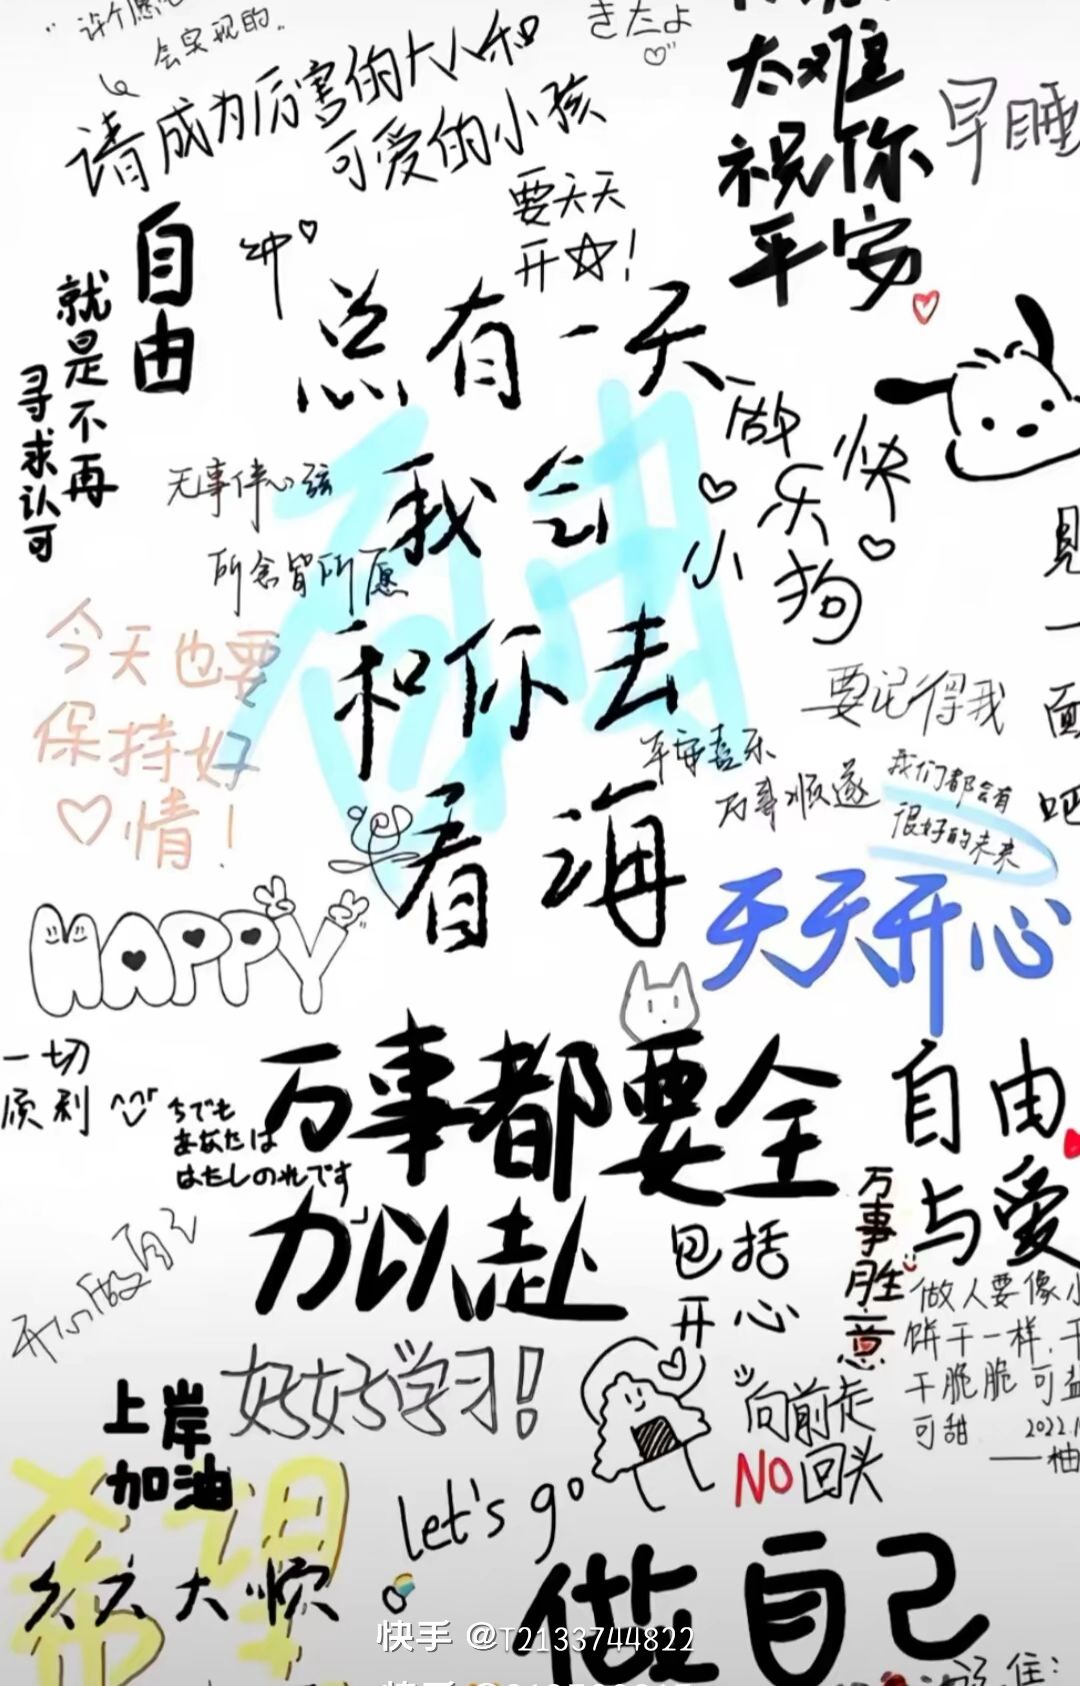 许个愿吧
会实现的..
请成为厉害的大人和
可爱的小孩
きたよ
太难
祝你
平安
早睡
要天天
开☆!
自由
就是不再
寻求认可
总有一天
我会
和你去
看海
自由
做
快
乐
小
狗
无事伴心弦
所念皆所愿
今天也要
保持好
♡情!
要记得我
平安喜乐
万事顺遂
我们都会有
很好的未来
見一面吧
HAPPY
天天开心
一切
顺利
ちでも
あなたは
はたしのれです
万事都要全
力以赴
包括
开心
自由
与爱
万事胜意
做人要像小
饼干一样,干
干脆脆 可盐
可甜
2022.1
——柚
开心做自己
好好学习!
上岸
加油
向前走
NO回头
let's go
希望
久久大顺
做自己
快手 @T2133744822
住: